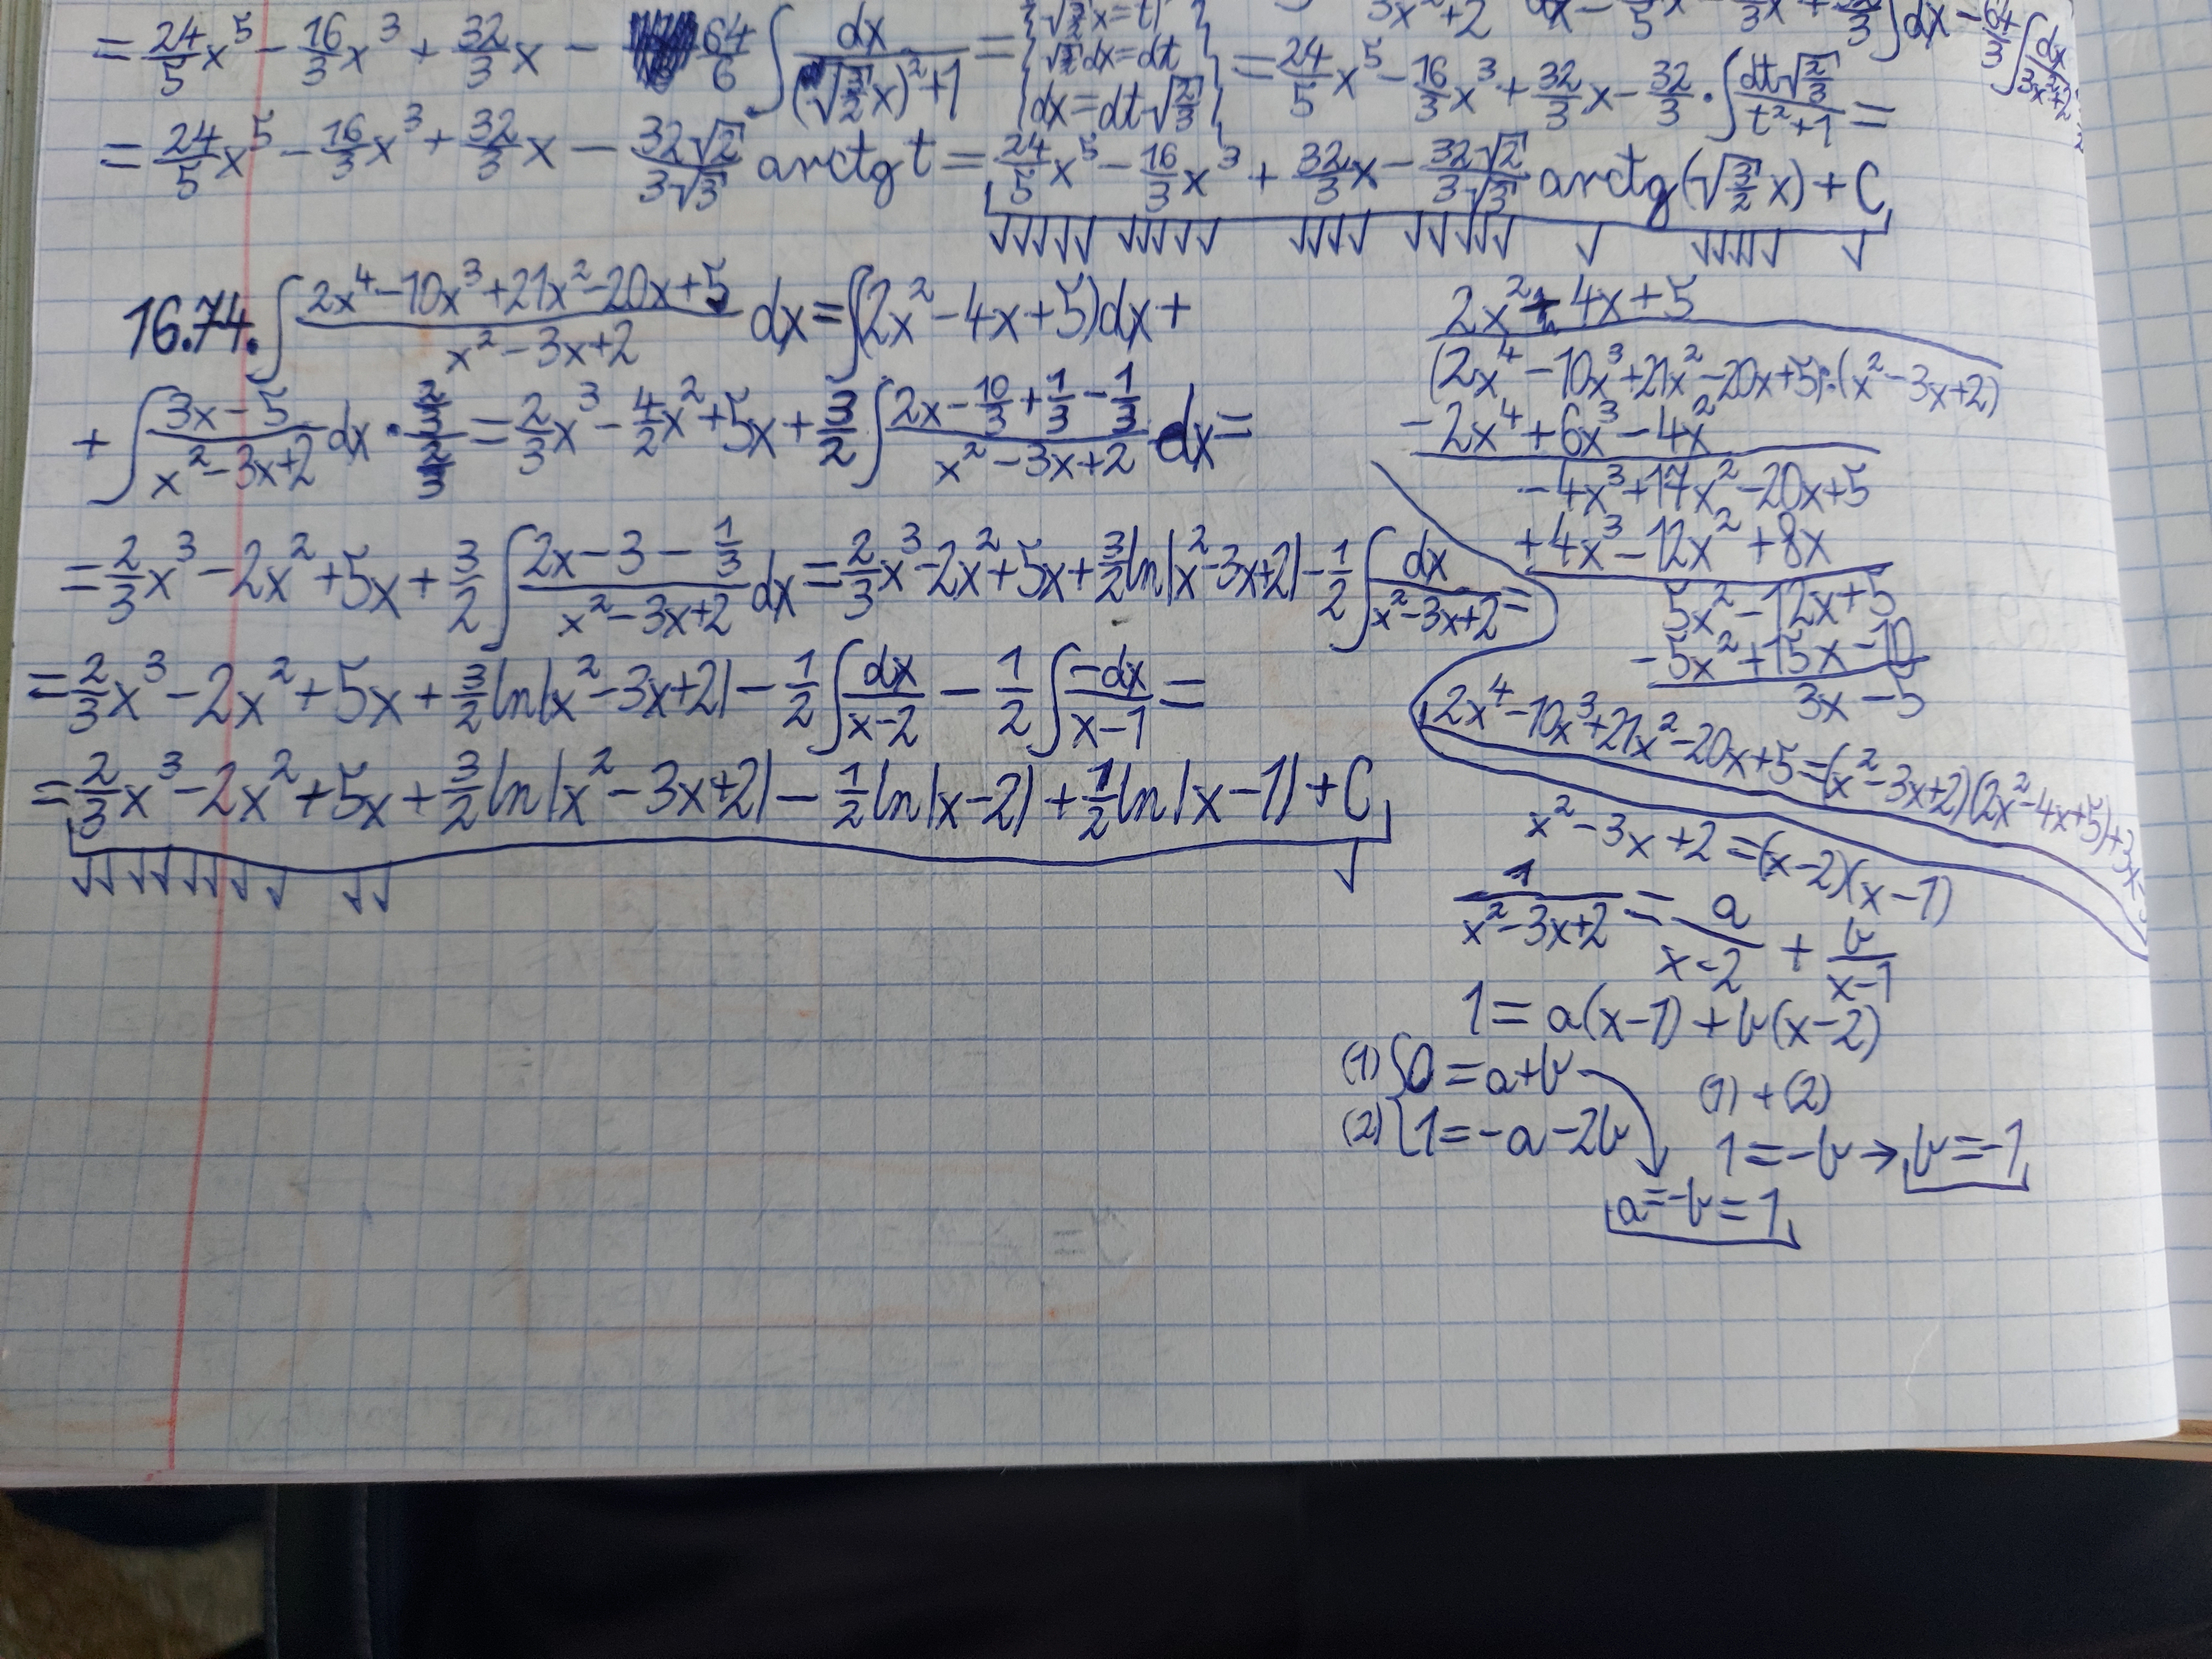 = 24/5 x⁵ − 16/3 x³ + 32/3 x − 64/6 ∫ dx/((√(3/2) x)² + 1) = { √(3/2) x = t
√(3/2) dx = dt
dx = dt √(2/3) } = 24/5 x⁵ − 16/3 x³ + 32/3 x − 32/3 · ∫ dt√(2/3)/(t² + 1) =
= 24/5 x⁵ − 16/3 x³ + 32/3 x − 32√2/3√3 arctg t = 24/5 x⁵ − 16/3 x³ + 32/3 x − 32√2/3√3 arctg(√(3/2) x) + C
16.74. ∫ (2x⁴ − 10x³ + 21x² − 20x + 5)/(x² − 3x + 2) dx = ∫(2x² − 4x + 5)dx +
+ ∫ (3x − 5)/(x² − 3x + 2) dx · (2/3)/(2/3) = 2/3 x³ − 4/2 x² + 5x + 3/2 ∫ (2x − 10/3 + 1/3 − 1/3)/(x² − 3x + 2) dx =
= 2/3 x³ − 2x² + 5x + 3/2 ∫ (2x − 3 − 1/3)/(x² − 3x + 2) dx = 2/3 x³ − 2x² + 5x + 3/2 ln|x² − 3x + 2| − 1/2 ∫ dx/(x² − 3x + 2) =
= 2/3 x³ − 2x² + 5x + 3/2 ln|x² − 3x + 2| − 1/2 ∫ dx/(x − 2) − 1/2 ∫ −dx/(x − 1) =
= 2/3 x³ − 2x² + 5x + 3/2 ln|x² − 3x + 2| − 1/2 ln|x − 2| + 1/2 ln|x − 1| + C
2x² − 4x + 5
(2x⁴ − 10x³ + 21x² − 20x + 5) : (x² − 3x + 2)
−2x⁴ + 6x³ − 4x²
−4x³ + 17x² − 20x + 5
+4x³ − 12x² + 8x
5x² − 12x + 5
−5x² + 15x − 10
3x − 5
2x⁴ − 10x³ + 21x² − 20x + 5 = (x² − 3x + 2)(2x² − 4x + 5) + 3x −
x² − 3x + 2 = (x − 2)(x − 1)
1/(x² − 3x + 2) = a/(x − 2) + b/(x − 1)
1 = a(x − 1) + b(x − 2)
(1) { 0 = a + b
(2) { 1 = −a − 2b
(1) + (2)
1 = −b → b = −1
a = −b = 1